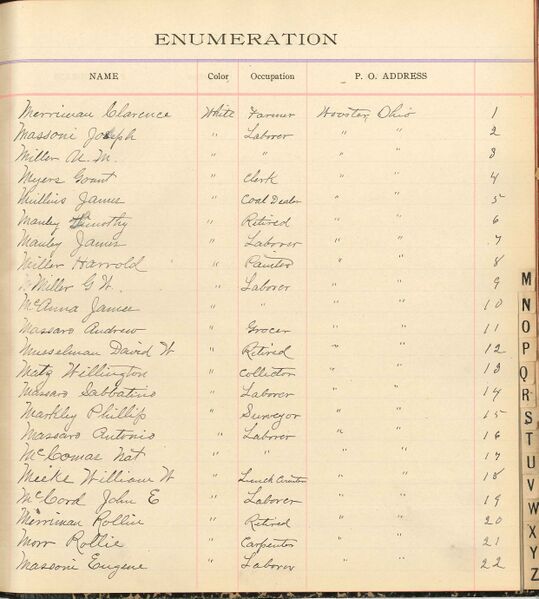 ENUMERATION
NAME Color Occupation P. O. ADDRESS
Merriman Clarence White Farmer Wooster, Ohio 1
Massoni Joseph " Laborer " " 2
Miller U. M. " " " " 3
Myers Grant " Clerk " " 4
Mullins James " Coal Dealer " " 5
Manley Timothy " Retired " " 6
Manley James " Laborer " " 7
Miller Harrold " Painter " " 8
Miller G W. " Laborer " " 9
McAnna James " " " " 10
Massaro Andrew " Grocer " " 11
Musselman David W " Retired " " 12
Matz Willington " Collector " " 13
Massaro Sabbatino " Laborer " " 14
Markley Phillip " Surveyor " " 15
Massaro Antonio " Laborer " " 16
McComas Nat " " " " 17
Meeke William W " Lunch " " 18
McCord John E " Laborer " " 19
Merriman Rollin " Retired " " 20
Morr Rollie " Carpenter " " 21
Massoni Eugene " Laborer " " 22
M
N
O
P
Q
R
S
T
U
V
W
X
Y
Z